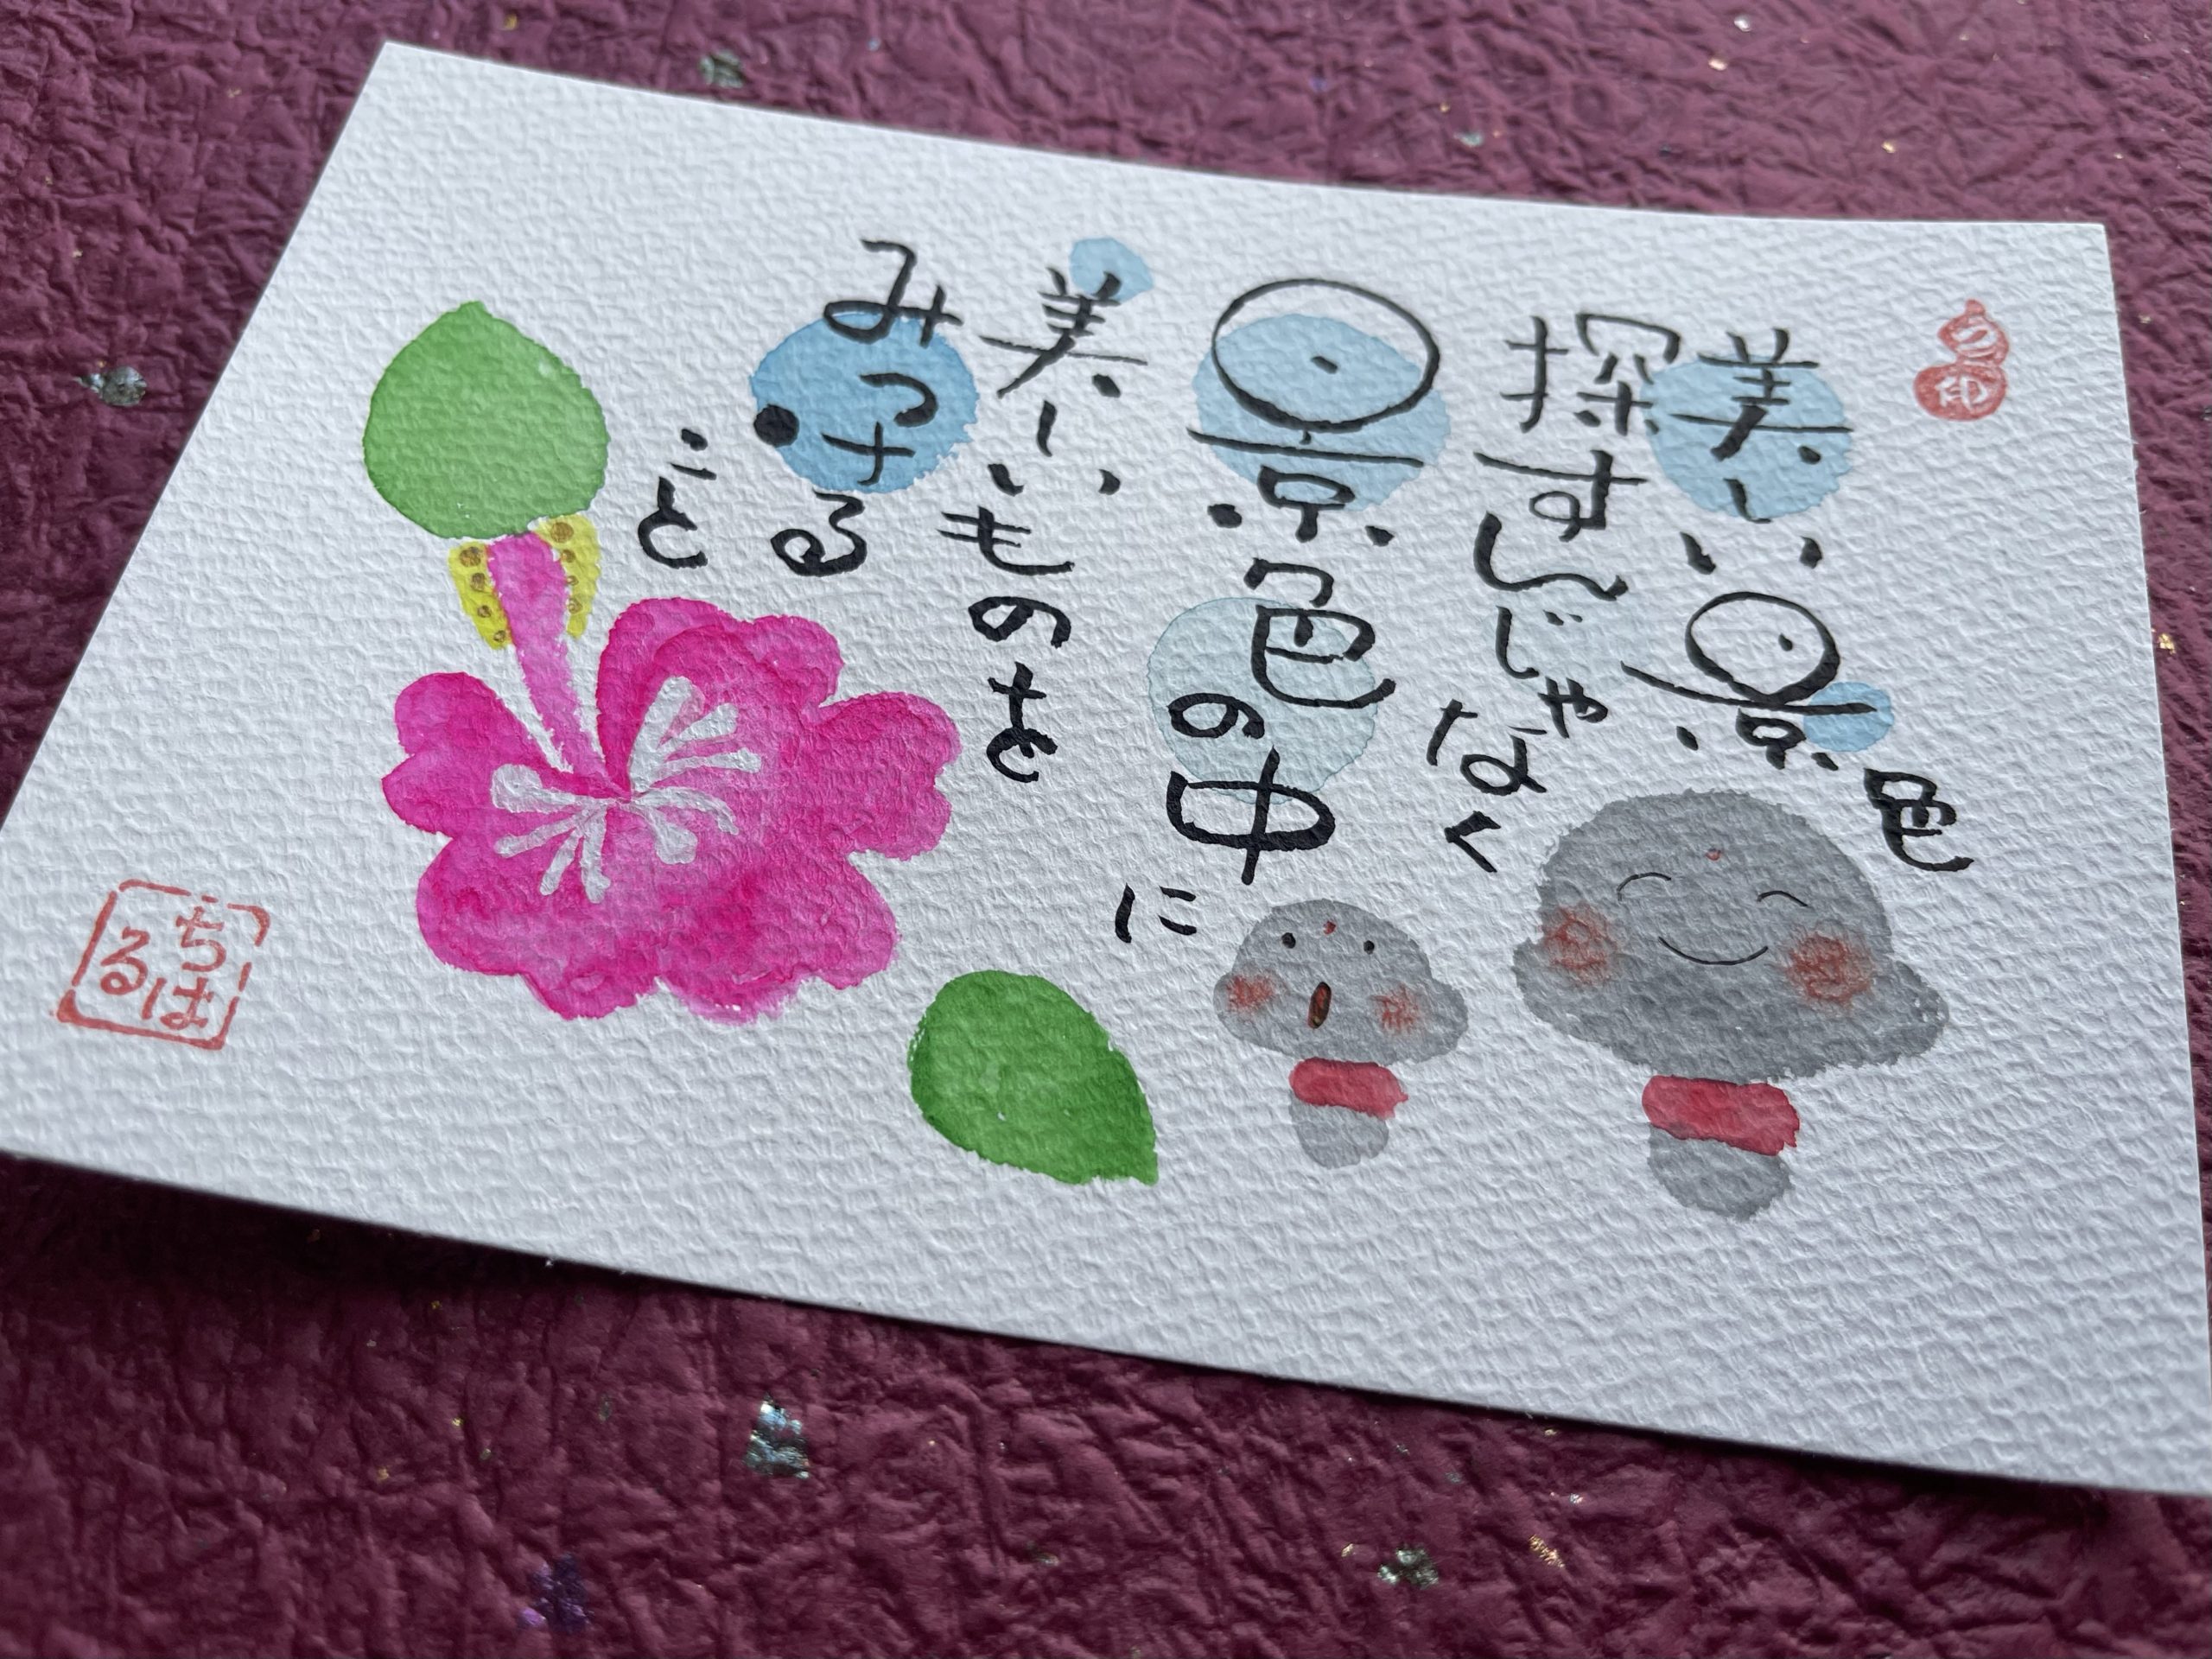 美しい景色
探すんじゃなく
景色の中に
美しいものを
みつける
こと
ちはる